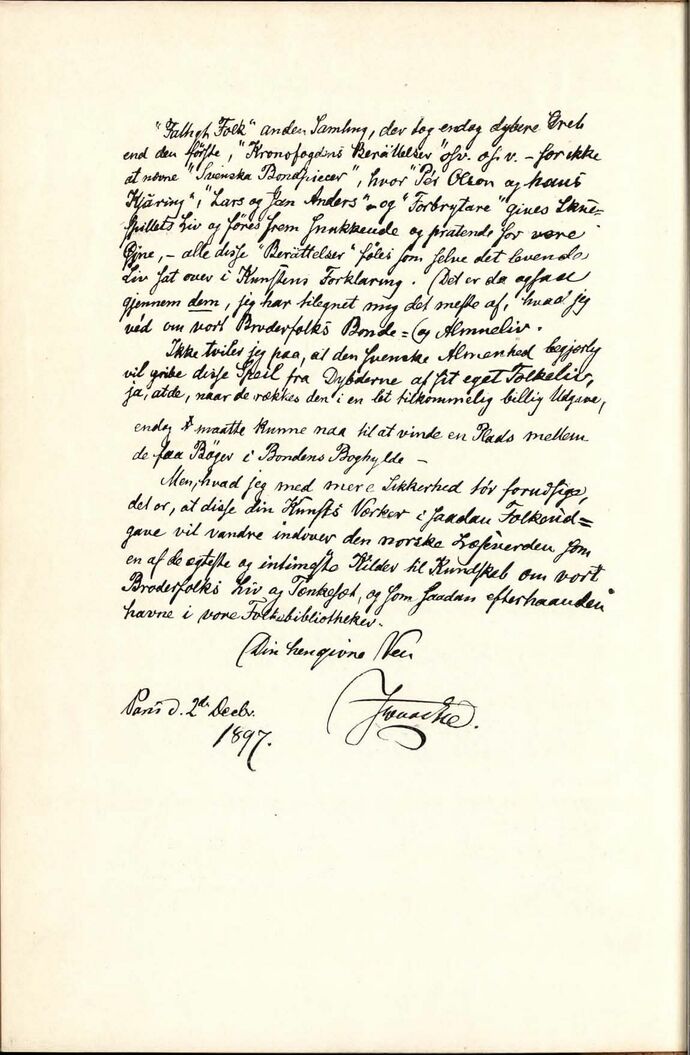 "Fattigt Folk" anden Samling, der tog endog dybere Greb
end den förste, "Kronofogdens Berättelser" osv. osv. – for ikke
at nevne "Svenska Bondpiecer", hvor "Per Olson og hans
Kjäring", "Lars og Jan Anders" – og "Förbrytare" gives Skue=
spillets Liv og föres frem snakkende og pratende for vore
Öjne, – alle disse "Berättelser" föles som selve det levende
Liv sat over i Kunstens Forklaring. Det er da ogsaa
gjennem dem, jeg har tilegnet mig det meste af, hvad jeg
véd om vort Broderfolks Bonde= og Almueliv.
Ikke tviler jeg paa, at den svenske Almenhed begjerlig
vil gribe disse Speil fra Dybderne af sit eget Folkeliv,
ja, at de, naar de rækkes den i en let tilkommelig billig Udgave,
endog maatte kunne naa til at vinde en Plads mellem
de faa Böger i Bondens Boghylde –
Men, hvad jeg med mere Sikkerhed tör forudsige,
det er, at disse din Kunsts Værker i saadan Folkeud=
gave vil vandre indover den norske Læseverden som
en af de egteste og intimeste Kilder til Kundskab om vort
Broderfolks Liv og Tænkesæt, og som saadan efterhaanden
havne i vore Folkebibliotheker.
Din hengivne Ven
Paris d. 2den Decbr.
1897.